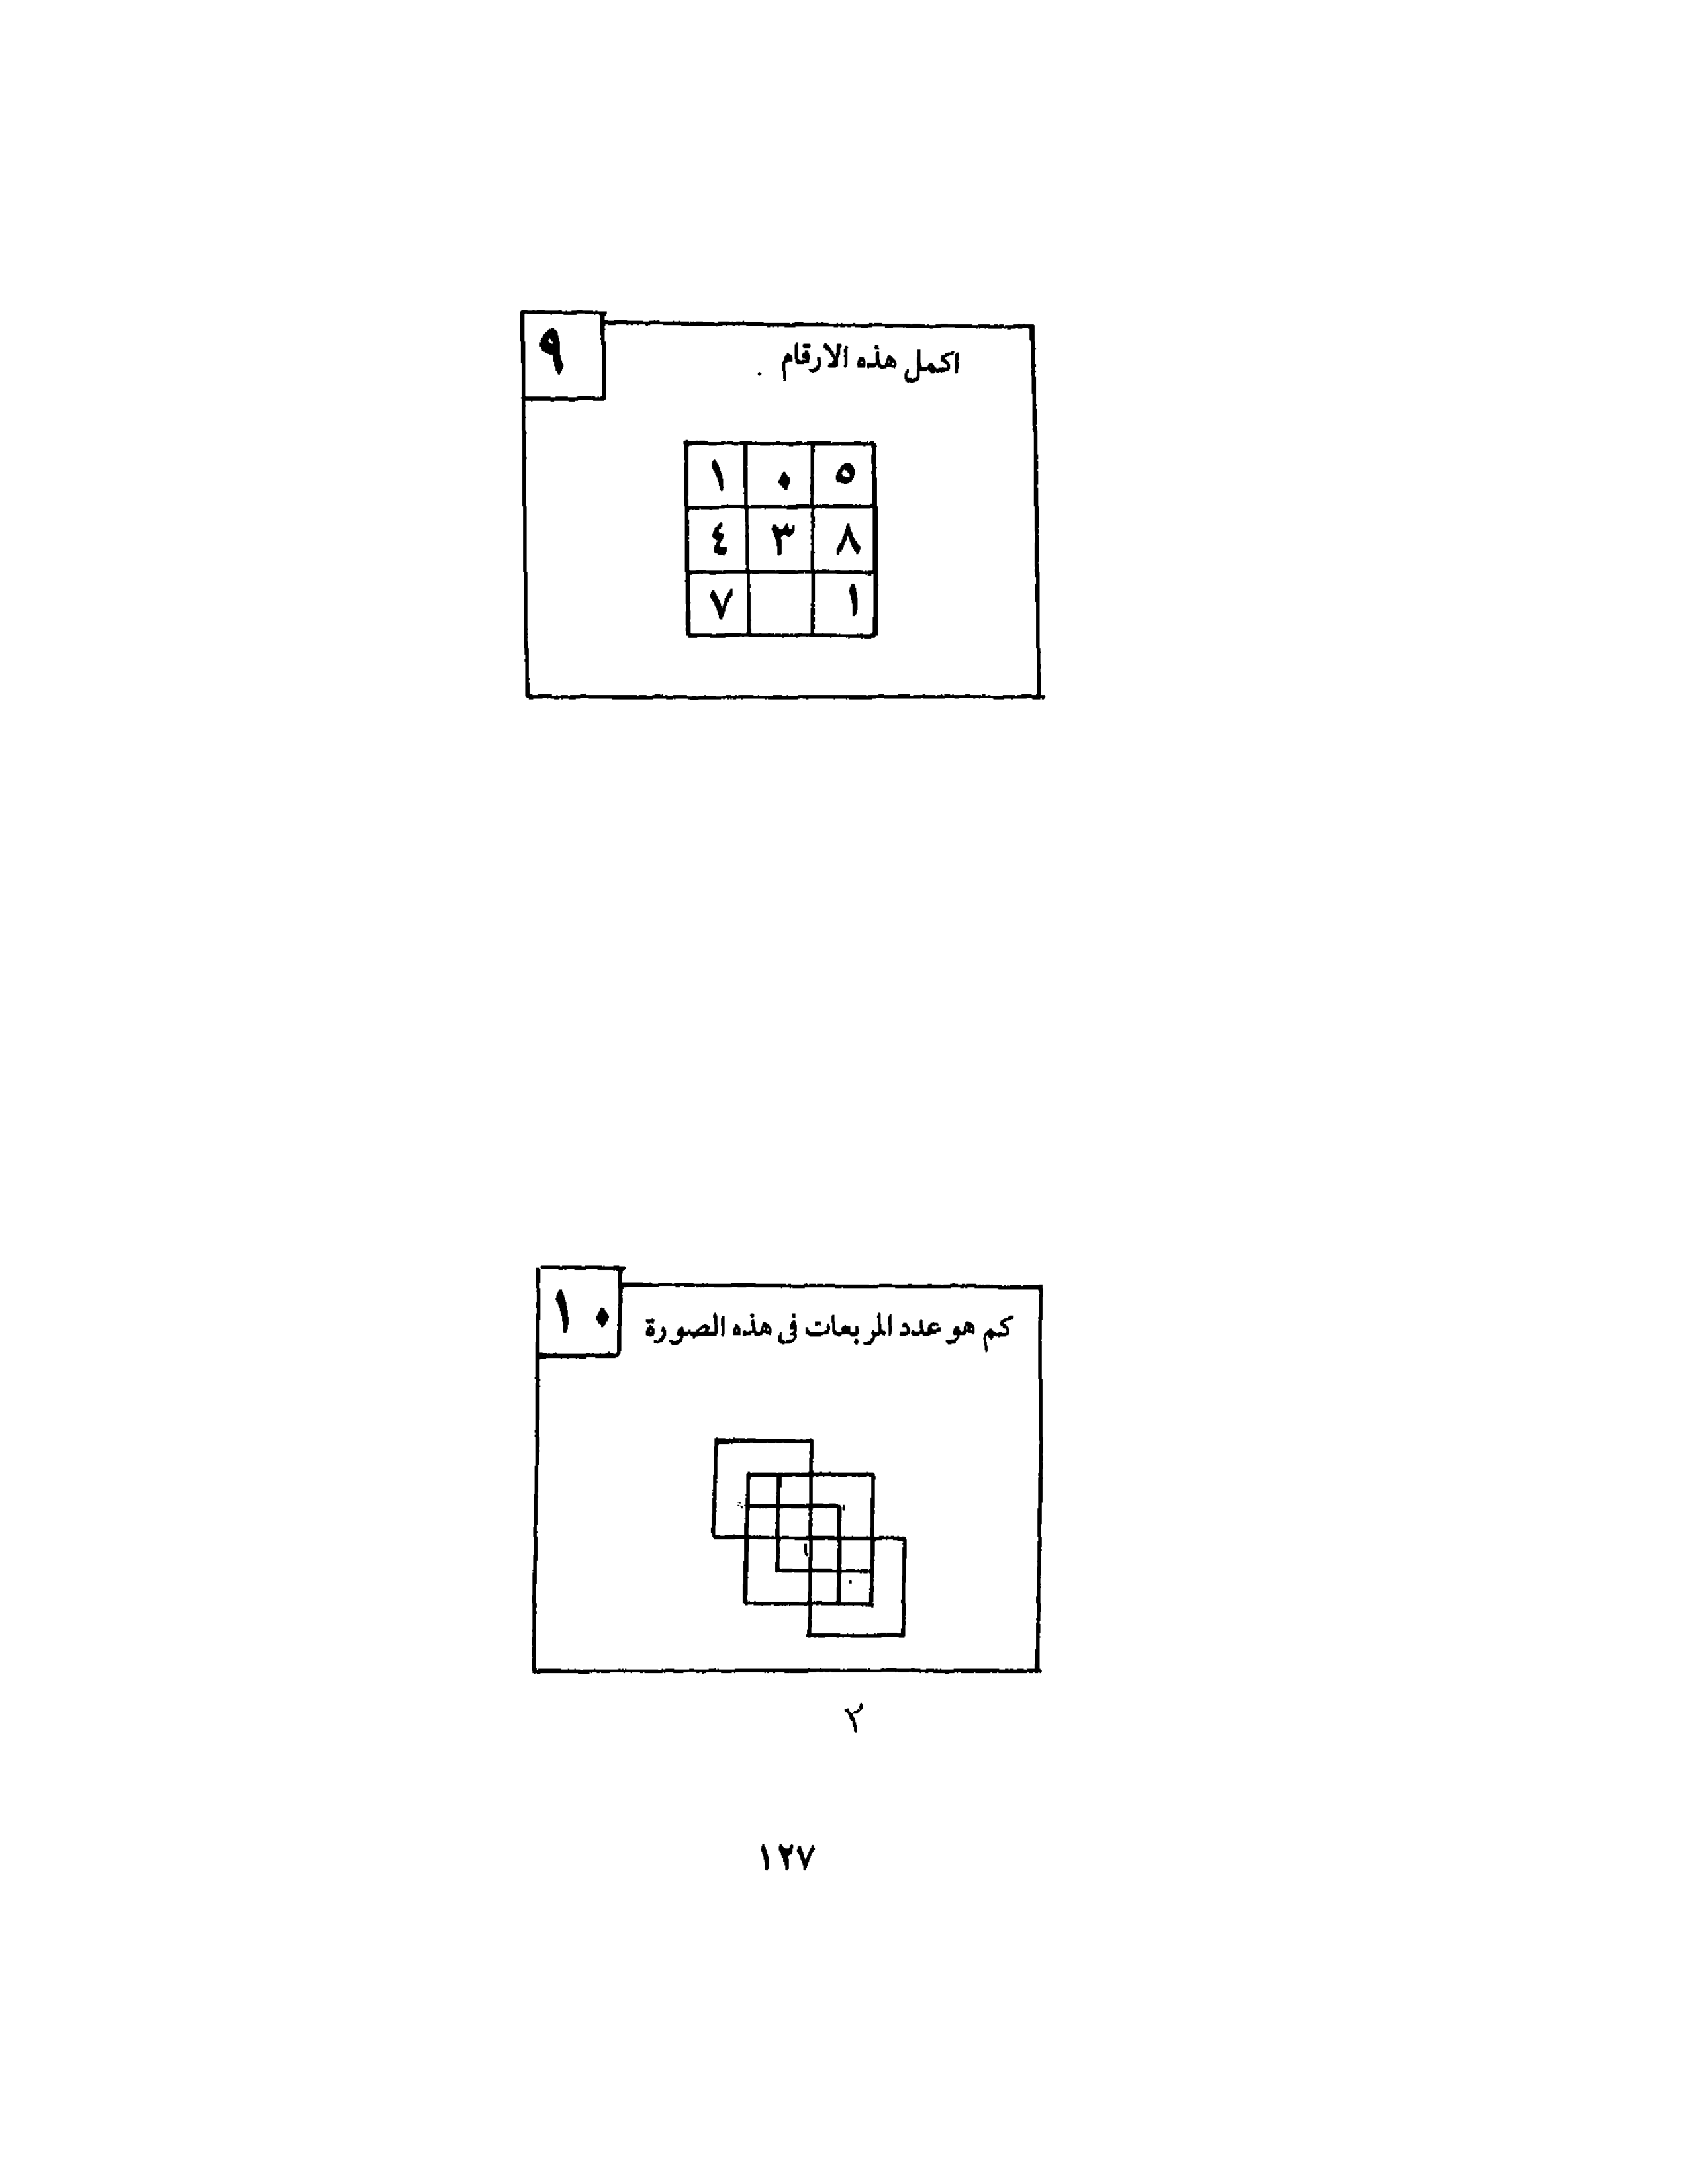 ٩
اكمل هذه الارقام .
١ ٠ ٥
٤ ٣ ٨
٧ ١
١٠
كم هو عدد المربعات فى هذه الصورة
٢
١٢٧